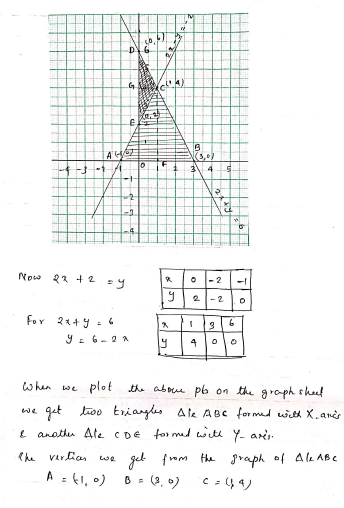 D 6 (0, 6)
2x-y=-2
5
G 4 C(1,4)
E (0,2)
A(-1,0)
B
(3,0)
-4 -3 -2 -1 0 F 1 2 3 4 5
-1
-2
-3
-4
2x+y=6
Now 2x + 2 = y
x 0 -2 -1
y 2 -2 0
For 2x+y = 6
y = 6-2x
x 1 3 6
y 4 0 0
When we plot the above pts on the graph sheet
we get two triangles Δle ABC formed with X-axis
& another Δle CDE formed with Y-axis.
The vertices we get from the graph of Δle ABC
A = (-1, 0) B = (3, 0) C = (1, 4)